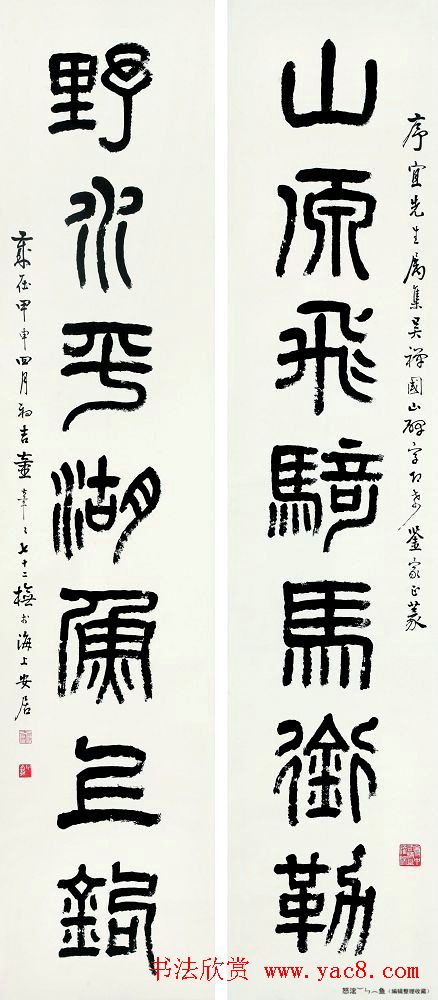 序宜先生属集吴禅國山碑字即希鉴家正篆
山原飛騎馬銜勒
野水平湖魚上鉤
歲在甲申四月初吉童七十二橅於海上安居
书法欣赏 www.yac8.com